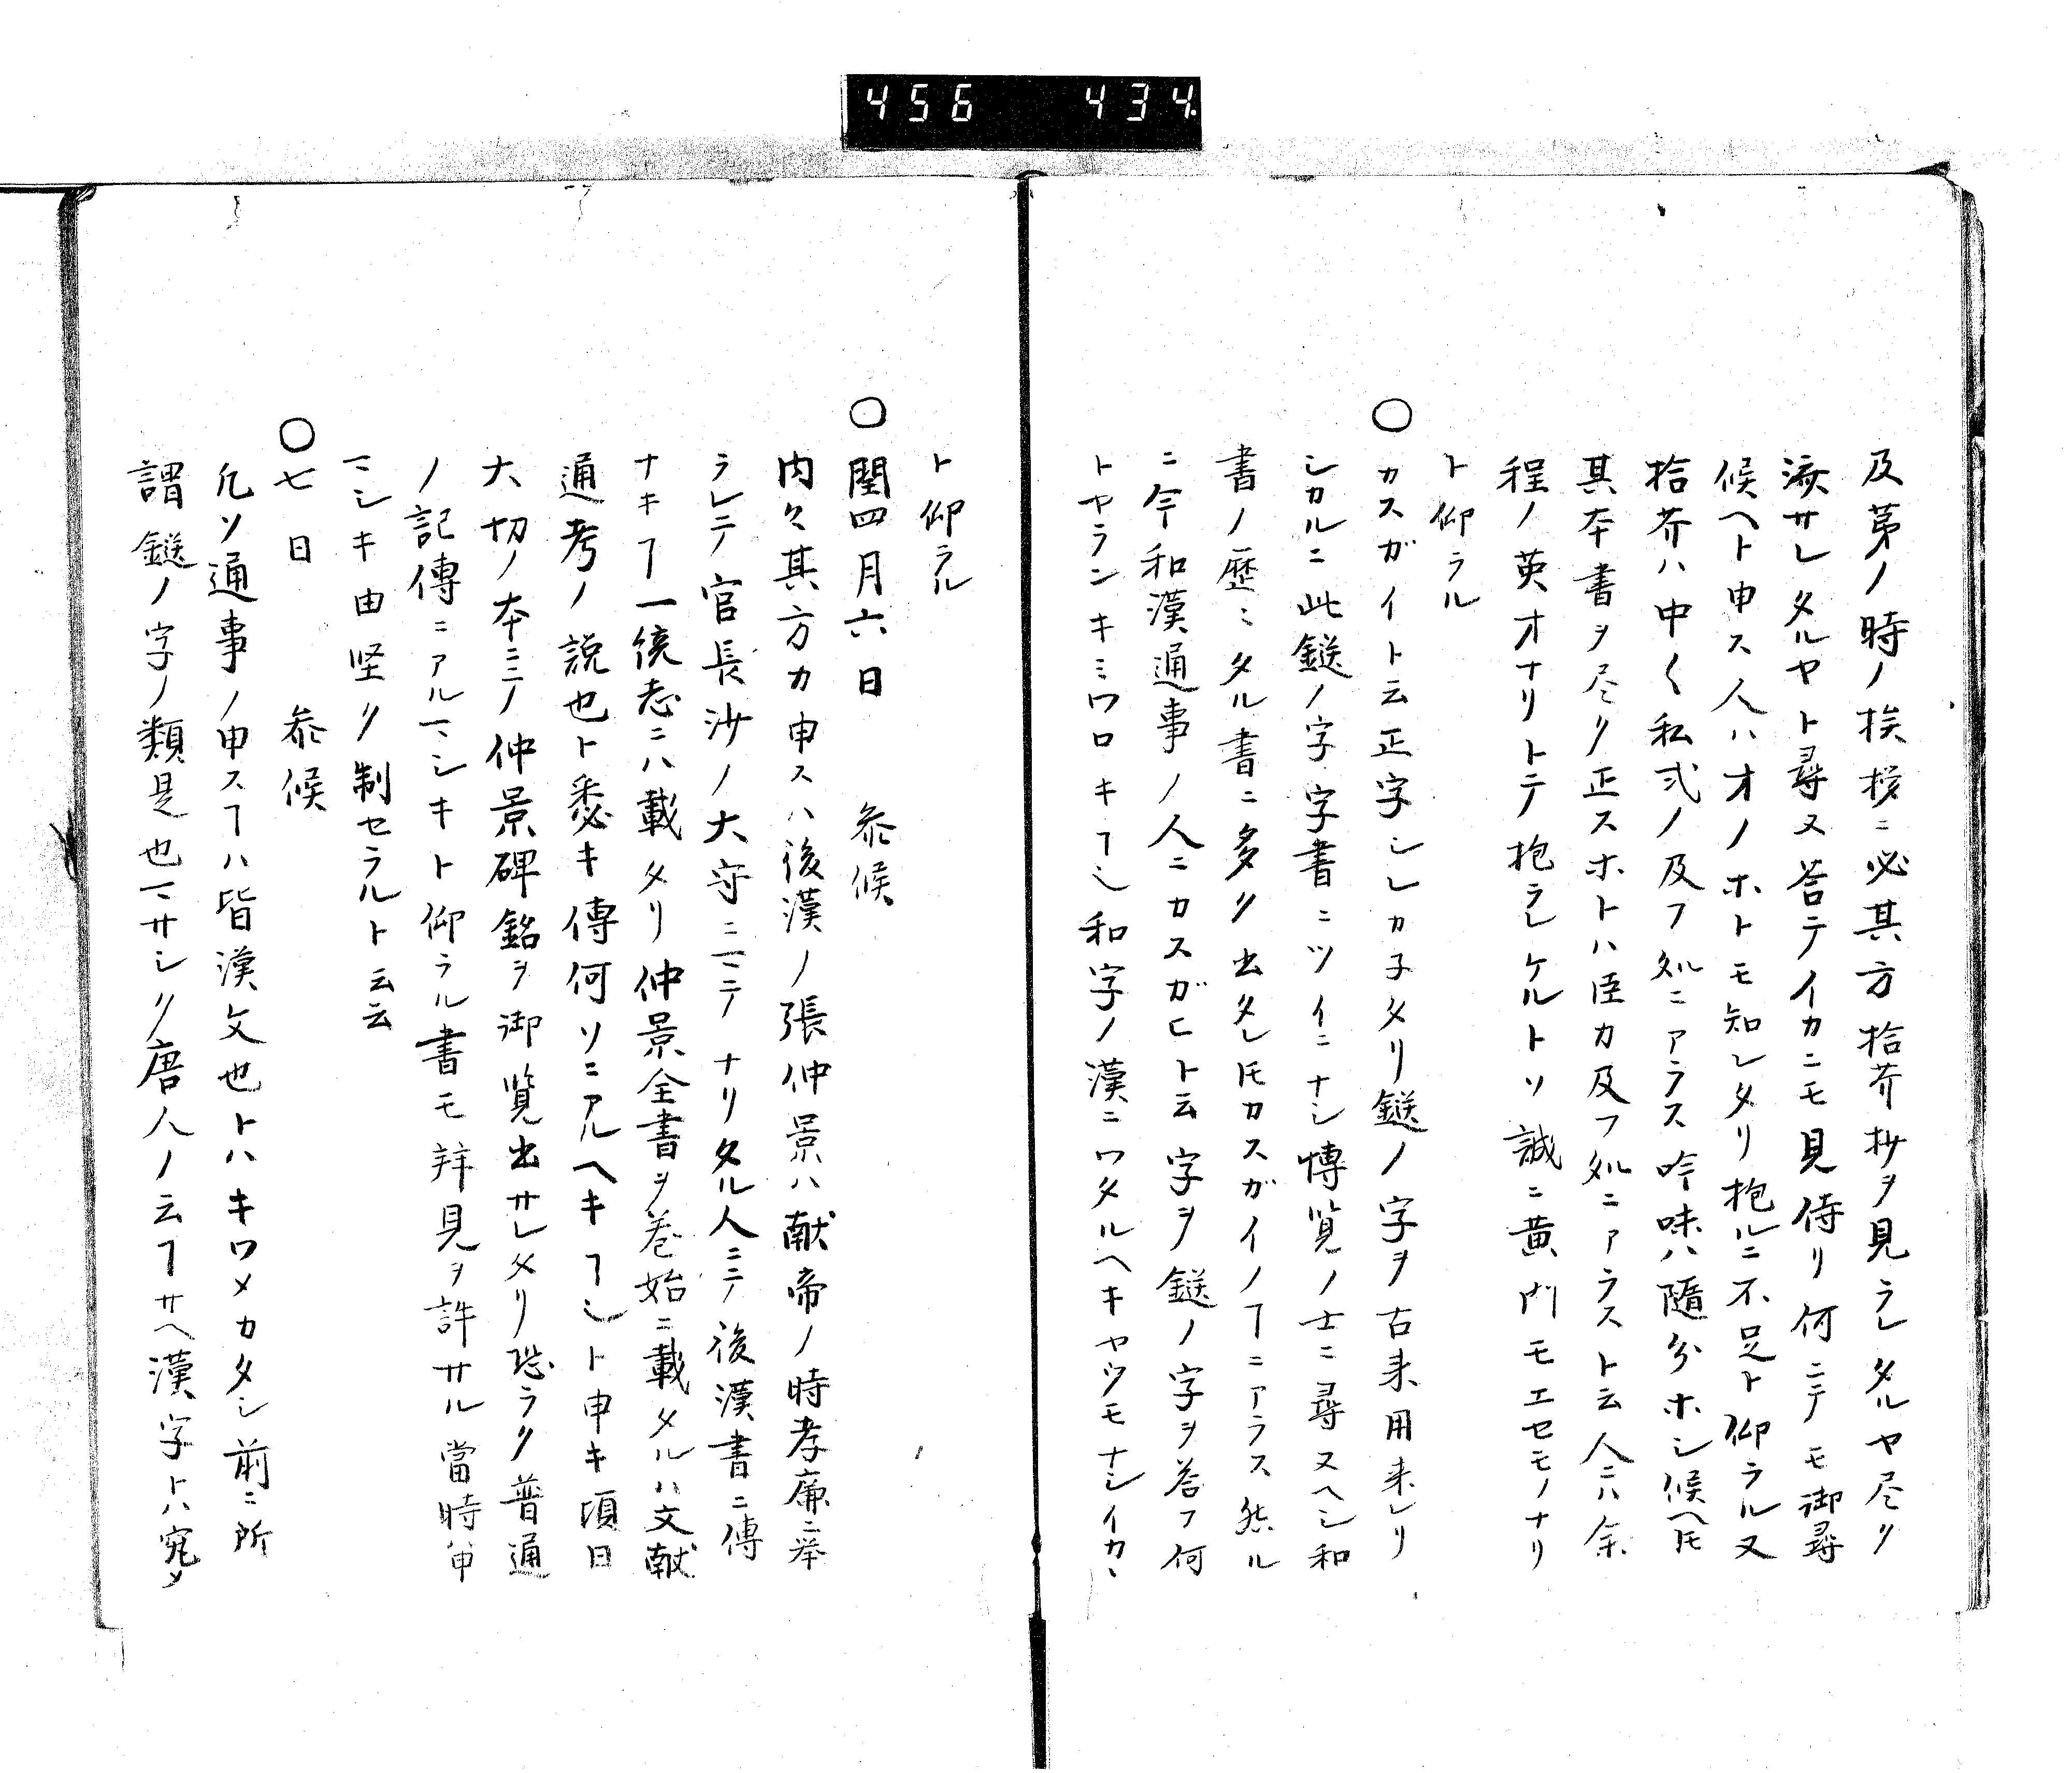 456 434
及第ノ時ノ挨拶ニ必其方拾芥抄ヲ見ラレタルヤ尽ク
済サレタルヤト尋ヌ答テイカニモ見侍リ何ニテモ御尋
候ヘト申ス人ハオノホトモ知レタリ抱ルニ不足ト仰ラル又
拾芥ハ中〱私式ノ及フ処ニアラス吟味ハ随分ホシ候ヘ𪜈
其本書ヲ尽ク正スホトハ臣カ及フ処ニアラスト云人ニハ余
程ノ英才ナリトテ抱ラレケルトソ誠ニ黄門モエセモノナリ
ト仰ラル
○カスガイト云正字シレカ子タリ鎹ノ字ヲ古来用来レリ
シカルニ此鎹ノ字字書ニツイニナシ博覧ノ士ニ尋ヌヘシ和
書ノ歴〻タル書ニ多ク出タレ𪜈カスガイノヿニアラス然ル
ニ今和漢通事ノ人ニカスガヒト云字ヲ鎹ノ字ヲ答フ何
トヤランキミワロキヿ也和字ノ漢ニワタルヘキヤウモナシイカヽ
ト仰ラル
○閏四月六日 参候
内々其方カ申スハ後漢ノ張仲景ハ献帝ノ時孝廉ニ挙
ラレテ官長沙ノ大守ニマテナリタル人ニテ後漢書ニ傳
ナキヿ一統志ニハ載タリ仲景全書ヲ巻始ニ載タルハ文献
通考ノ説也ト悉キ傳何ソニアルヘキヿ也ト申キ頃日
大切ノ本ニテ仲景碑銘ヲ御覧出サレタリ恐ラク普通
ノ記傳ニアルマシキト仰ラル書モ拝見ヲ許サル當時申
マシキ由堅ク制セラルト云云
○七日 参候
凡ソ通事ノ申スヿハ皆漢文也トハキワメカタシ前ニ所
謂鎹ノ字ノ類是也マサシク唐人ノ云ヿサヘ漢字トハ究メ